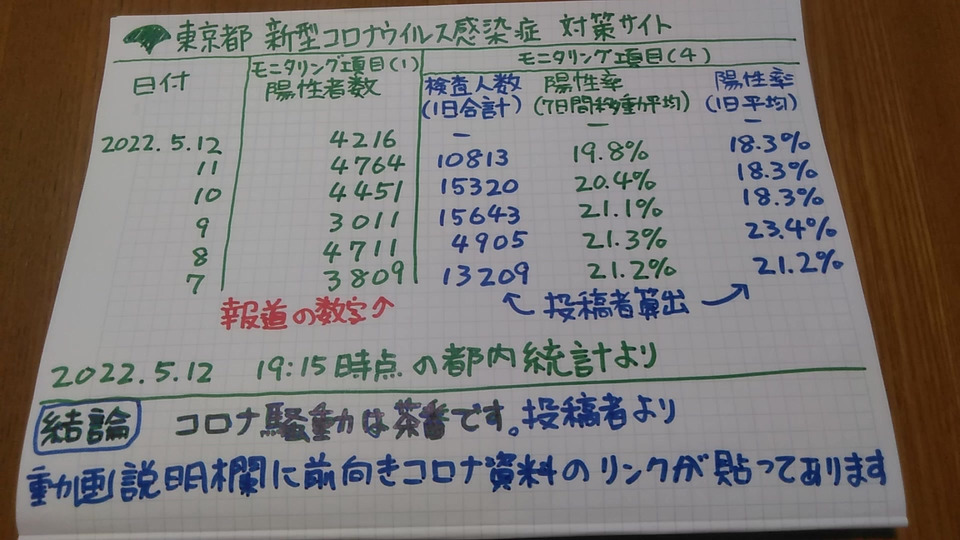 東京都 新型コロナウイルス感染症 対策サイト
日付 モニタリング項目(1) 陽性者数 モニタリング項目(4) 検査人数(1日合計) 陽性率(7日間移動平均) 陽性率(1日平均)
2022.5.12 4216 — — —
11 4764 10813 19.8% 18.3%
10 4451 15320 20.4% 18.3%
9 3011 15643 21.1% 18.3%
8 4711 4905 21.3% 23.4%
7 3809 13209 21.2% 21.2%
報道の数字↑ ↖ 投稿者算出 ↗
2022.5.12 19:15時点の都内統計より
結論 コロナ騒動は茶番です。投稿者より
動画説明欄に前向きコロナ資料のリンクが貼ってあります